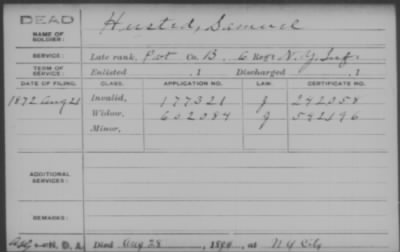 DEAD
NAME OF SOLDIER: Husted, Samuel
SERVICE: Late rank, Pvt Co. B, 6 Reg't N.Y. Inf.
TERM OF SERVICE: Enlisted , 1 Discharged , 1
DATE OF FILING. CLASS. APPLICATION NO. LAW. CERTIFICATE NO.
1872 Aug 21 Invalid, 177321 J 242058
Widow, 602084 J 542196
Minor,
ADDITIONAL SERVICES:
REMARKS:
Died Aug 28, at N Y City